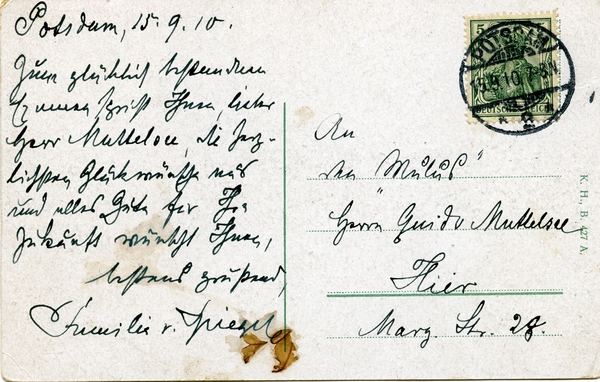 Potsdam, 15.9.10.
Zum glücklich bestandenen
Examen spricht Ihnen, lieber
Herr Muttelsee, die herz-
lichsten Glückwünsche aus
und alles Gute für Ihre
Zukunft wünscht Ihnen,
bestens grüßend,
Familie v. Spiegel
5
POTSDAM
15.9.10. 7-8N
DEUTSCHES REICH
An
den "Mulus"
Herrn Guido Muttelsee
Hier
Marg. Str. 28.
K. H., B. 427 A.